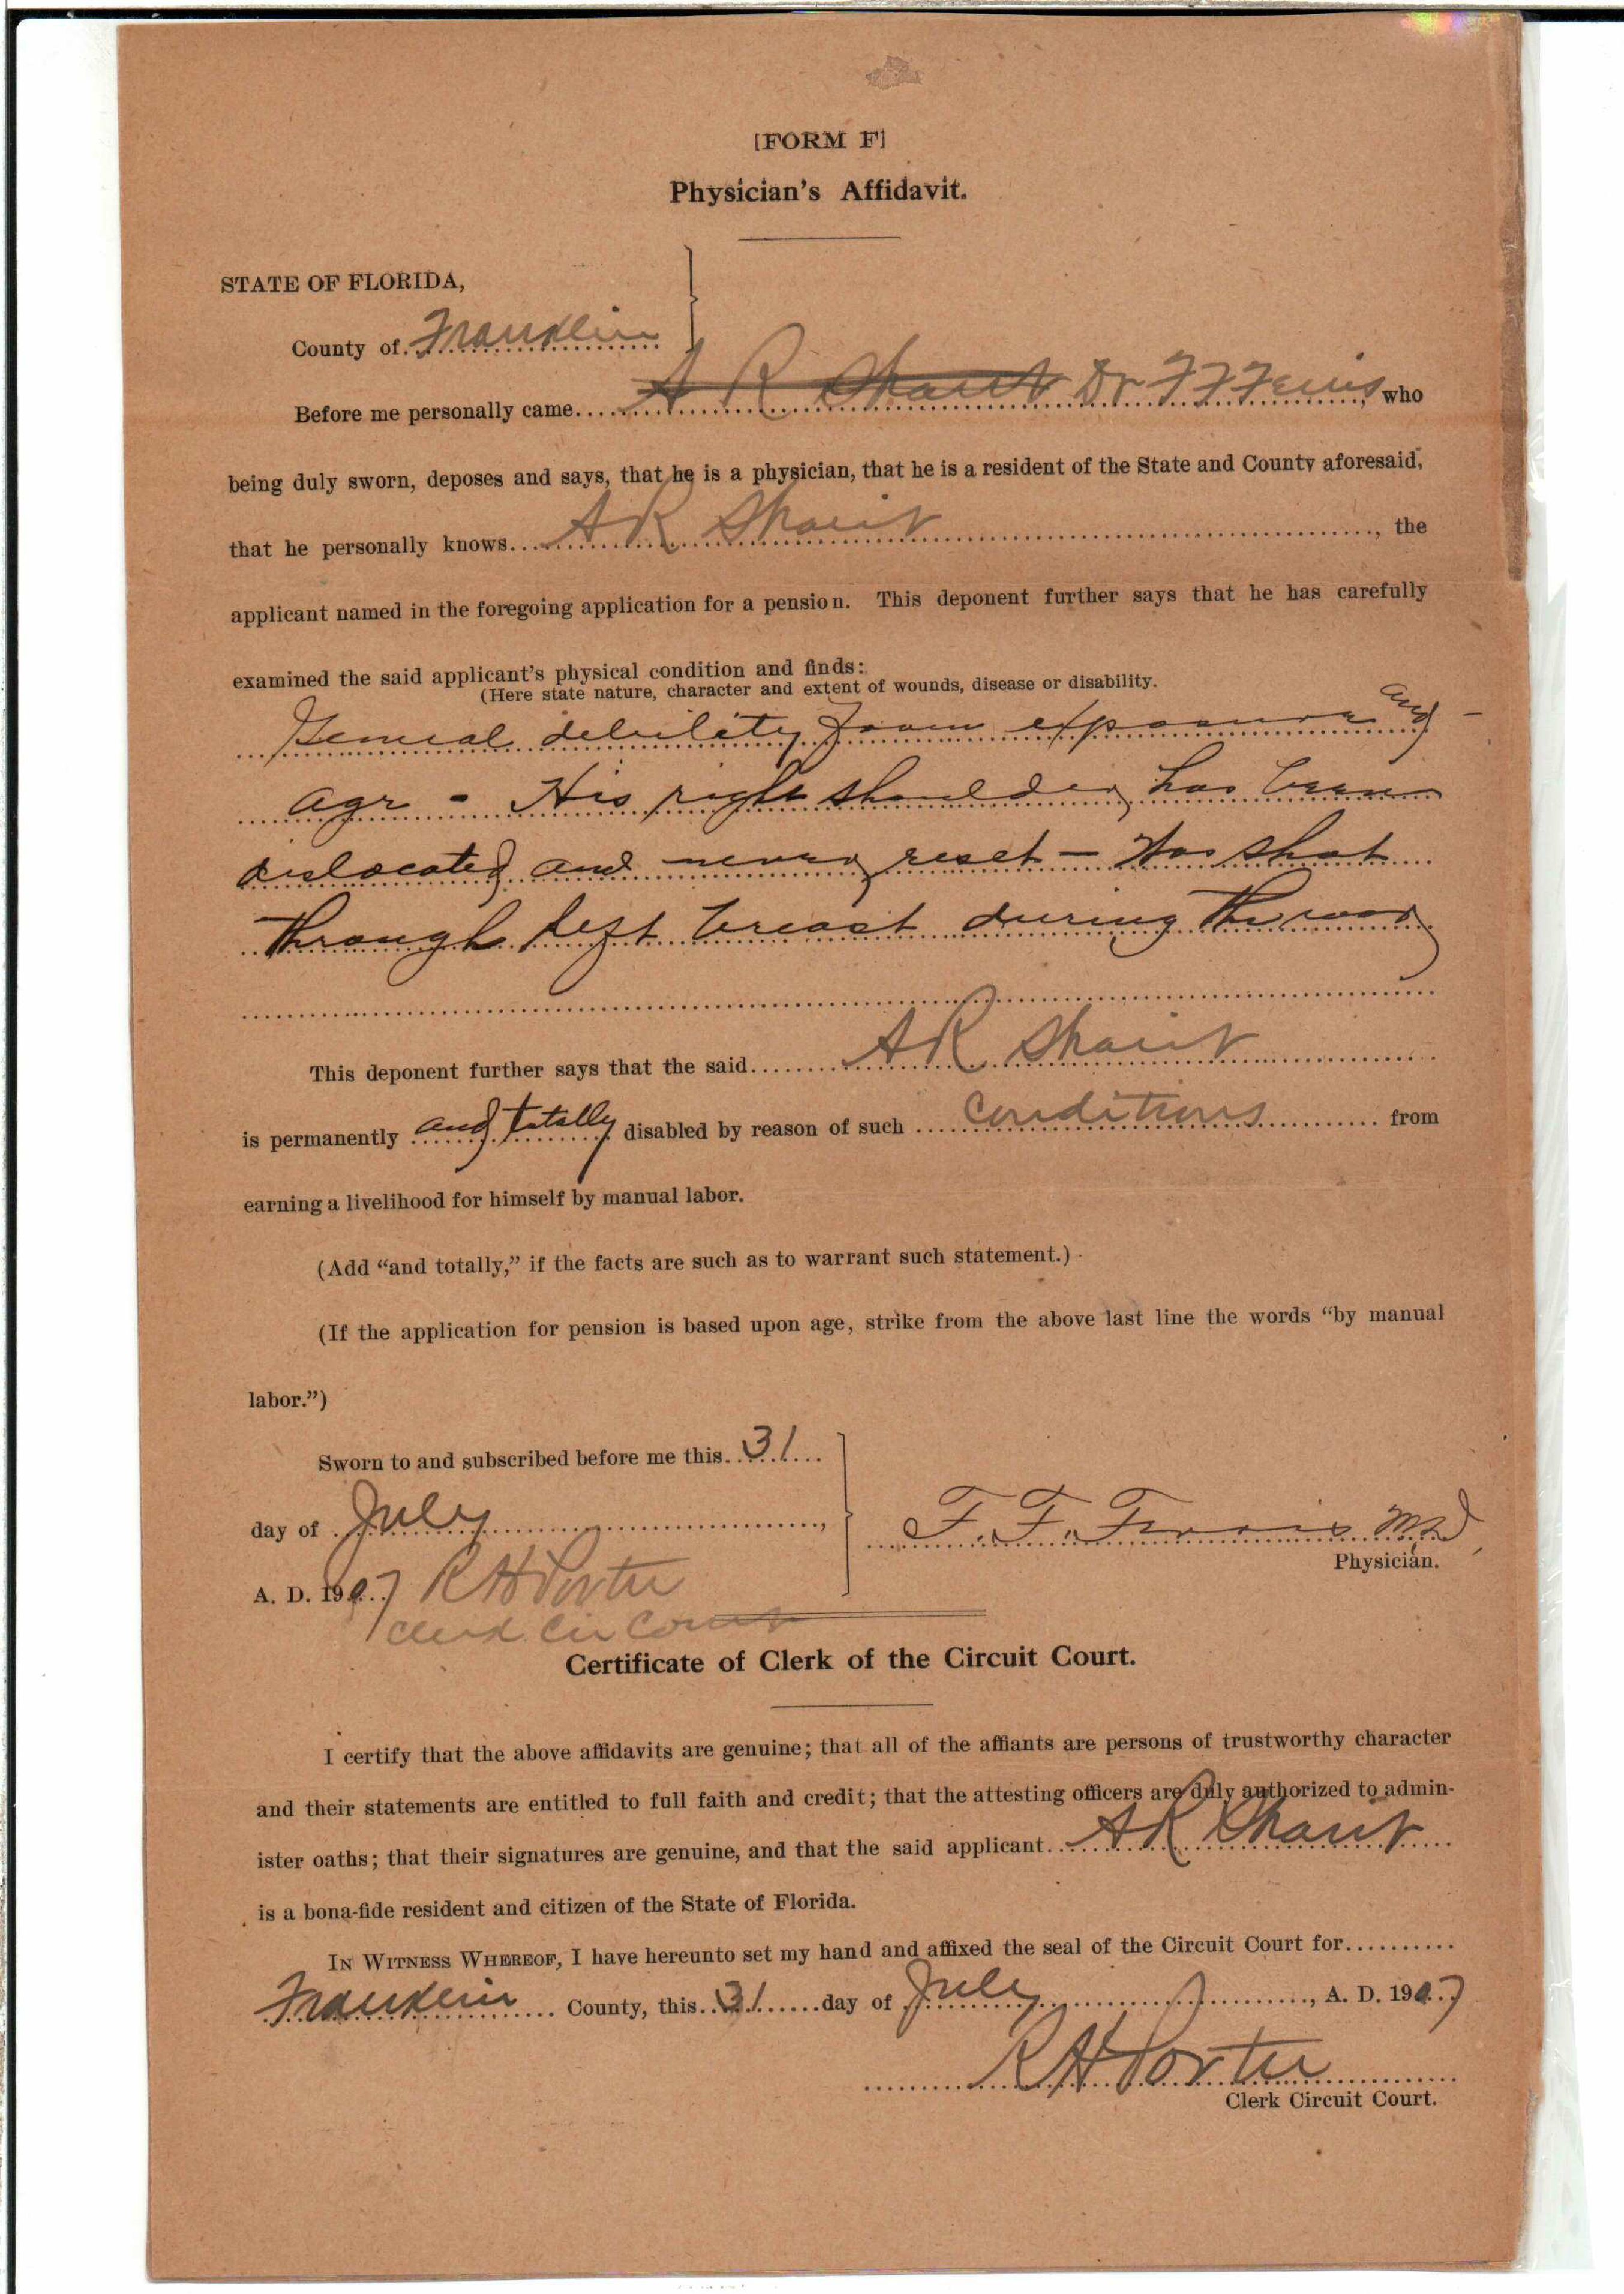 [FORM F]
Physician's Affidavit.
STATE OF FLORIDA,
County of Franklin
Before me personally came A R Shaut Dr F F Ferris, who
being duly sworn, deposes and says, that he is a physician, that he is a resident of the State and County aforesaid,
that he personally knows A R , the
applicant named in the foregoing application for a pension. This deponent further says that he has carefully
examined the said applicant's physical condition and finds:
(Here state nature, character and extent of wounds, disease or disability.
General debility from exposure and
age - His right shoulder has been
dislocated and never reset - Was shot
through left breast during the war
This deponent further says that the said A R
is permanently and totally disabled by reason of such conditions from
earning a livelihood for himself by manual labor.
(Add "and totally," if the facts are such as to warrant such statement.)
(If the application for pension is based upon age, strike from the above last line the words "by manual
labor.")
Sworn to and subscribed before me this 31
day of July,
F. F. Ferris MD
Physician.
A. D. 1907 R H Porter
Clerk Cir Court
Certificate of Clerk of the Circuit Court.
I certify that the above affidavits are genuine; that all of the affiants are persons of trustworthy character
and their statements are entitled to full faith and credit; that the attesting officers are duly authorized to admin-
ister oaths; that their signatures are genuine, and that the said applicant A R
is a bona-fide resident and citizen of the State of Florida.
IN WITNESS WHEREOF, I have hereunto set my hand and affixed the seal of the Circuit Court for
Franklin County, this 31 day of July, A. D. 1907
R H Porter
Clerk Circuit Court.